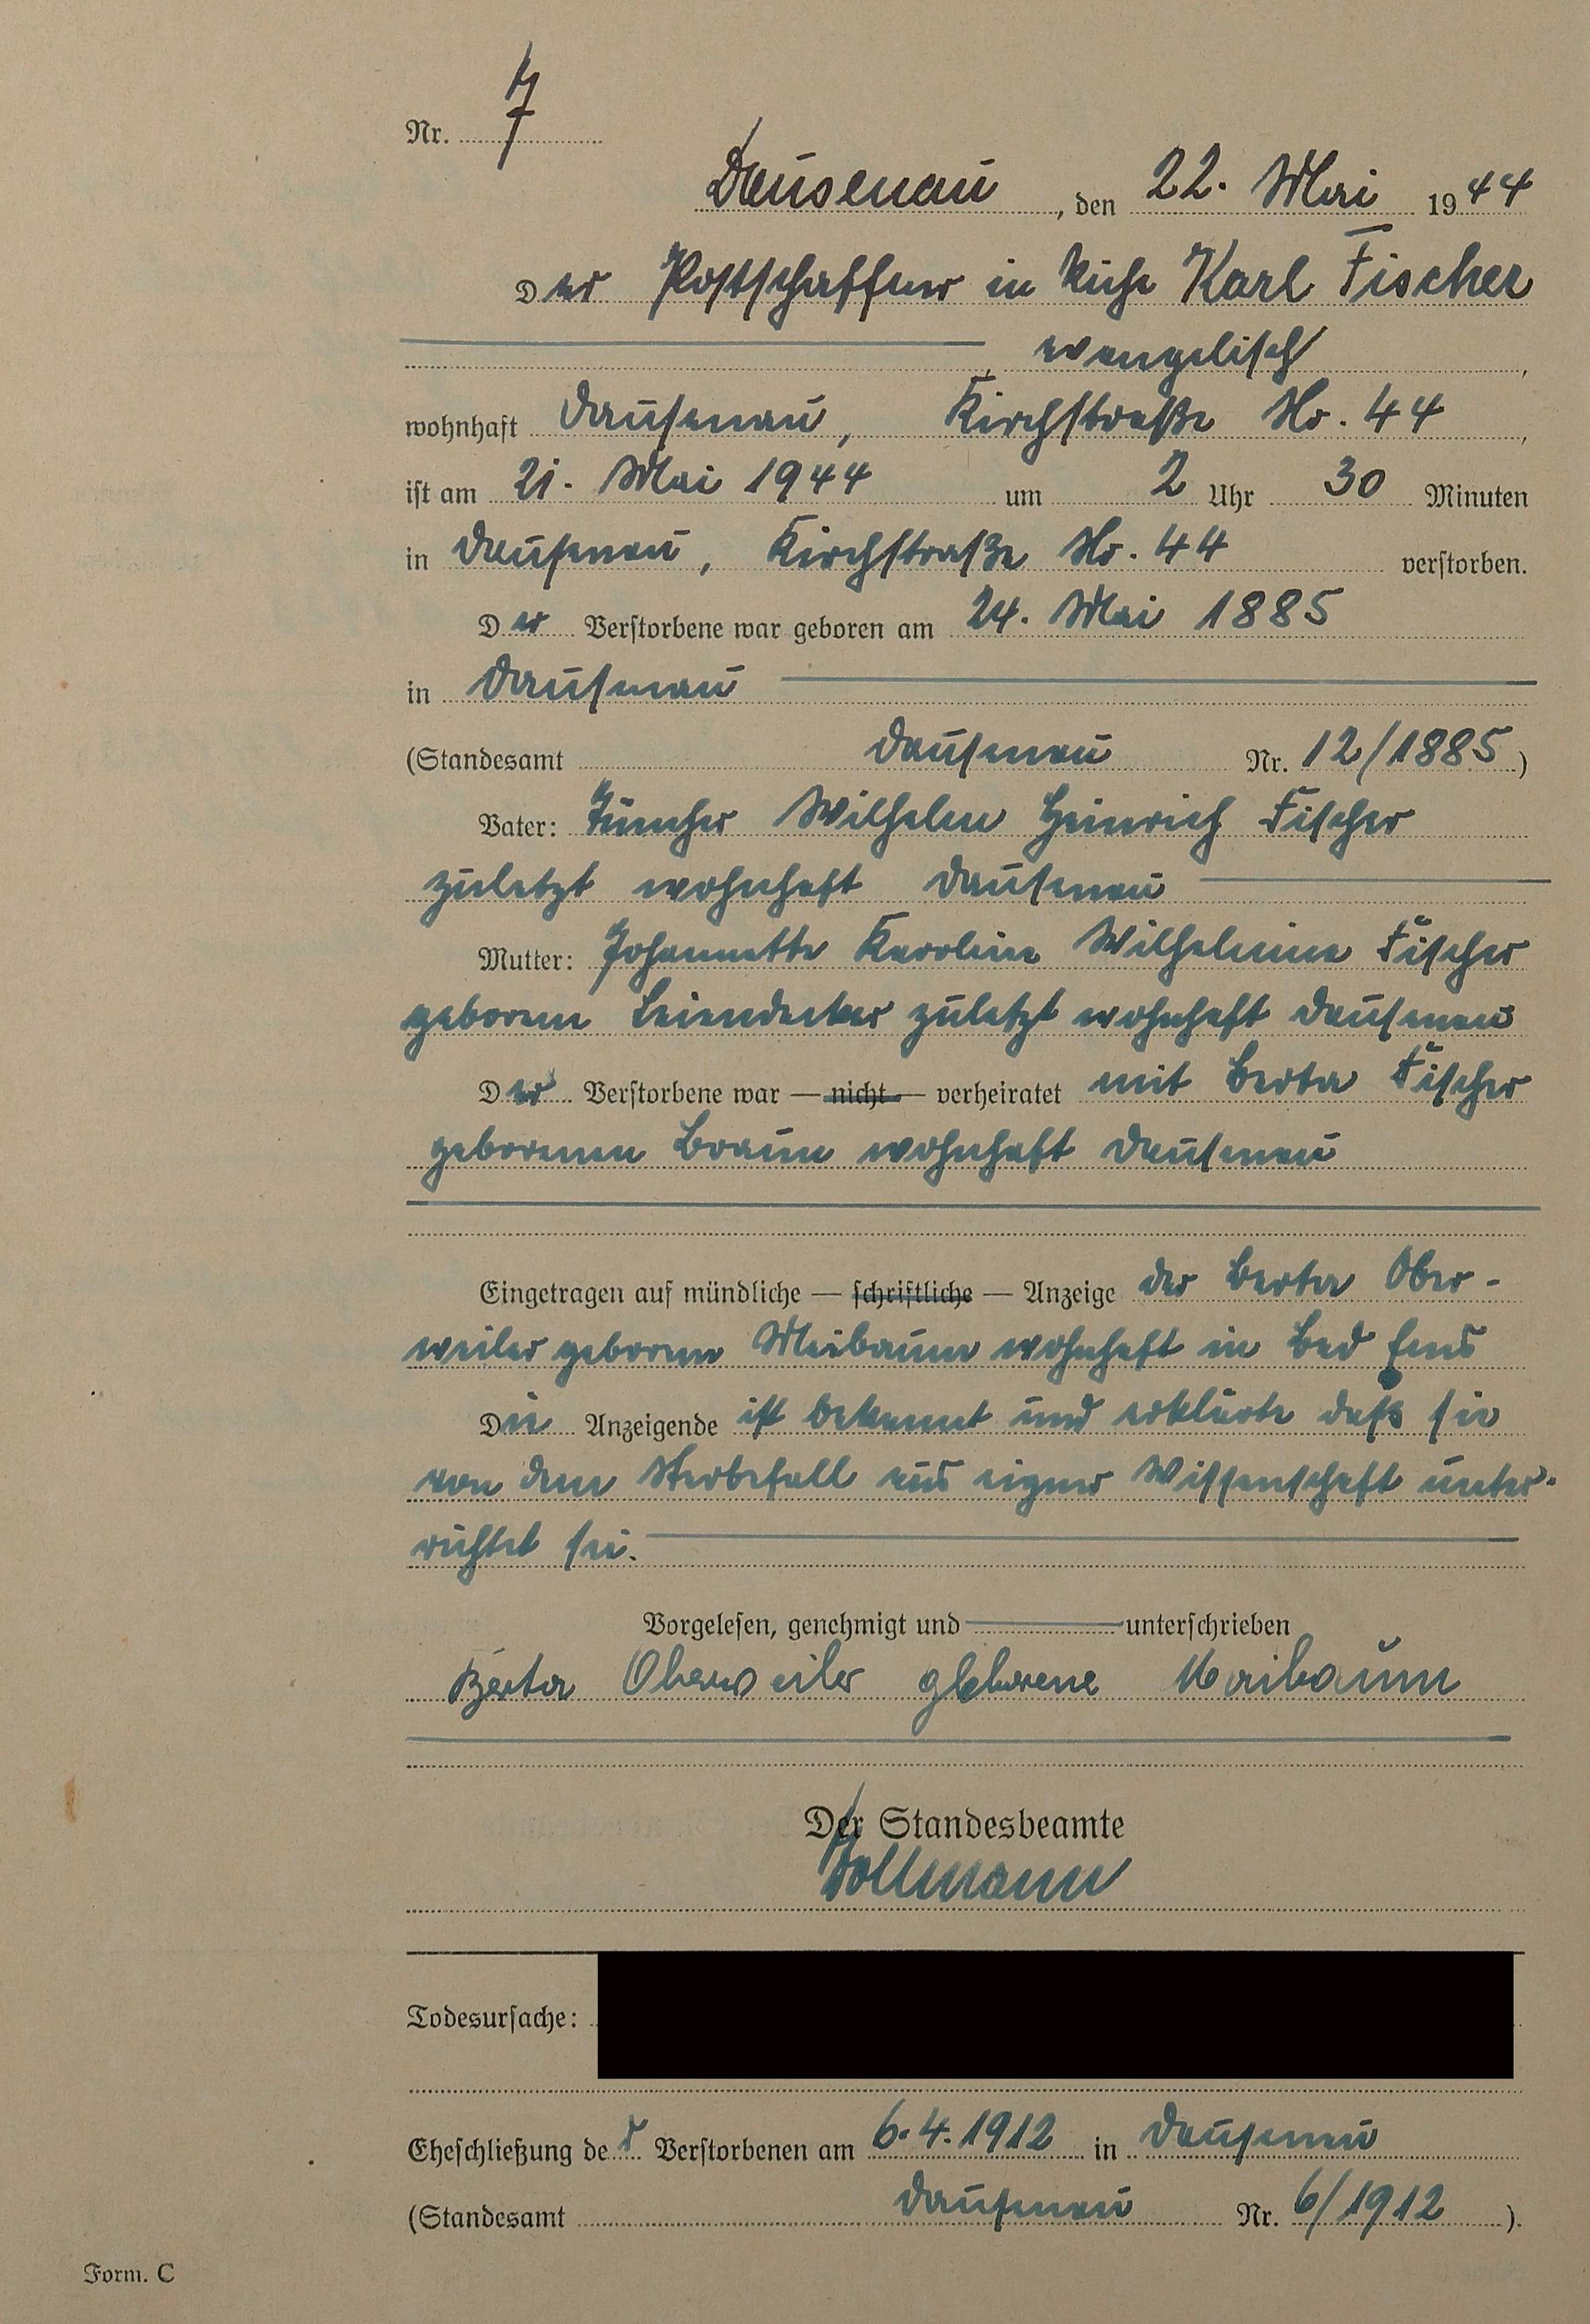 Nr. 7
Dausenau, den 22. Mai 1944
Der Postschaffner in Ruhe Karl Fischer
evangelisch,
wohnhaft Dausenau, Kirchstraße No. 44,
ist am 21. Mai 1944 um 2 Uhr 30 Minuten
in Dausenau, Kirchstraße No. 44 verstorben.
Der Verstorbene war geboren am 24. Mai 1885
in Dausenau
(Standesamt Dausenau Nr. 12/1885)
Vater: Tüncher Wilhelm Heinrich Fischer
zuletzt wohnhaft Dausenau
Mutter: Johannette Karoline Wilhelmine Fischer
geborene Leiendecker zuletzt wohnhaft Dausenau
Der Verstorbene war — nicht — verheiratet mit Berta Fischer
geborenen Braun wohnhaft Dausenau
Eingetragen auf mündliche — schriftliche — Anzeige der Berta Ober-
weiler geborene Meibaum wohnhaft in Bad Ems
Die Anzeigende ist bekannt und erklärte daß sie
von dem Sterbefall aus eigner Wissenschaft unter-
richtet sei.
Vorgelesen, genehmigt und unterschrieben
Berta Oberweiler geborene Maibaum
Der Standesbeamte
Todesursache:
Eheschließung der Verstorbenen am 6.4.1912 in Dausenau
(Standesamt Dausenau Nr. 6/1912).
Form. C